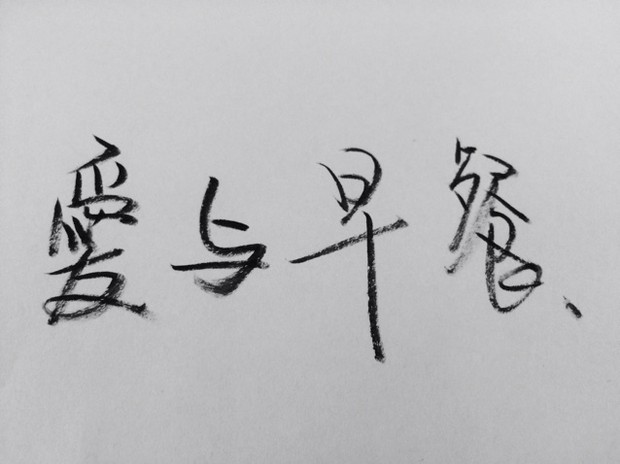 愛与早餐、